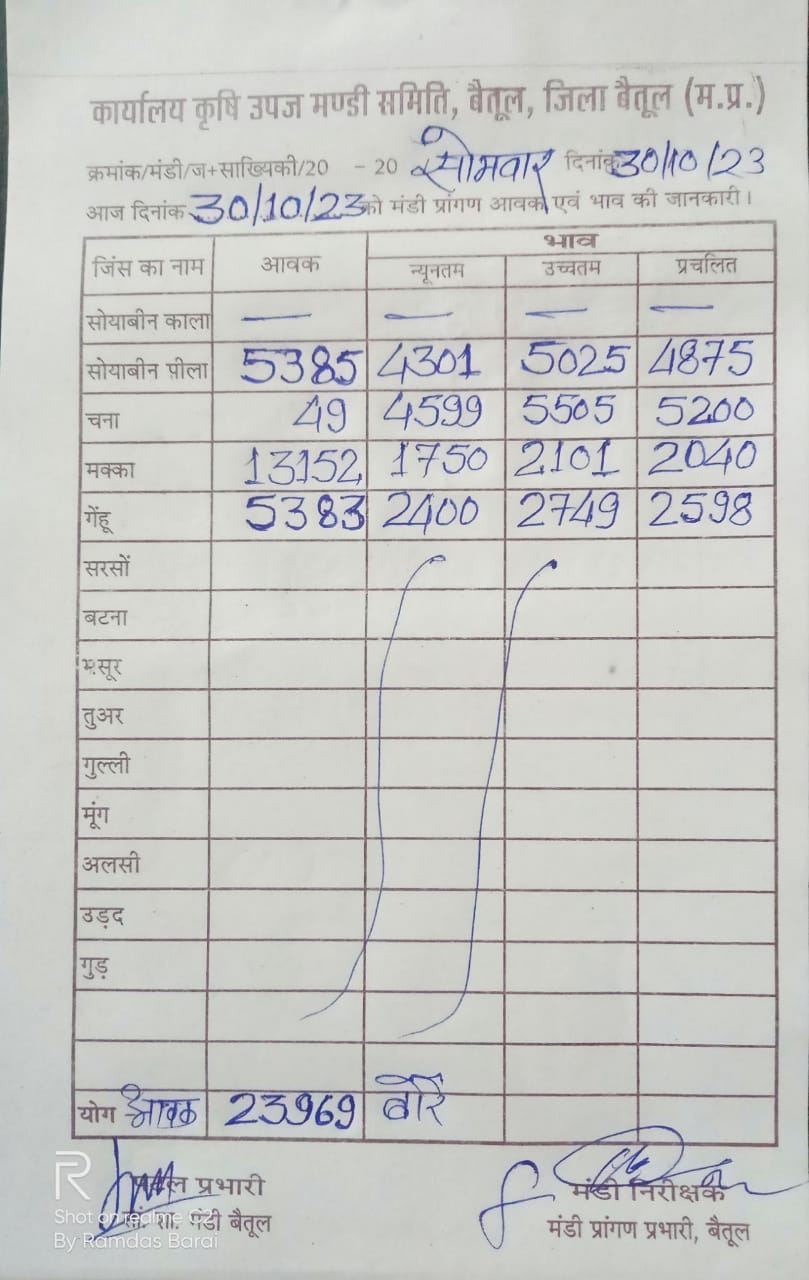 कार्यालय कृषि उपज मण्डी समिति, बैतूल, जिला बैतूल (म.प्र.)
क्रमांक/मंडी/ज+साख्यिकी/20 - 20 सोमवार दिनांक 30/10/23
आज दिनांक 30/10/23 को मंडी प्रॉगण आवक एवं भाव की जानकारी।
जिंस का नाम आवक भाव
न्यूनतम उच्चतम प्रचलित
सोयाबीन काला — — — —
सोयाबीन पीला 5385 4301 5025 4875
चना 49 4599 5505 5200
मक्का 13152 1750 2101 2040
गेंहू 5383 2400 2749 2598
सरसों
बटना
मसूर
तुअर
गुल्ली
मूंग
अलसी
उड़द
गुड़
योग आवक 23969 बोरे
प्रभारी मंडी निरीक्षक
मंडी बैतूल मंडी प्रांगण प्रभारी, बैतूल
Shot on realme C2
By Ramdas Barai